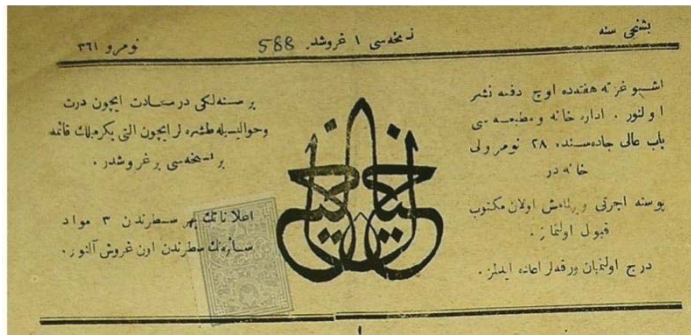 بشنجی سنه
نسخه‌سی ١ غروشدر 588
نومرو ٣٦١
اشبو غزته هفته‌ده اوچ دفعه نشر
اولنور . اداره خانه و مطبعه سی
باب عالی جاده‌سنده ٢٨ نومرولی
خانه در
پوسته اجرتی ویرلمامش اولان مکتوب
قبول اولنماز .
درج اولنمیان ورقه‌لر اعاده ایدلمز .
خیال
بر سنه‌لکی در سعادت ایچون درت
وحوالیسیله طشره لر ایچون التی یکرمیلك قائمه
بر نسخه‌سی بر غروشدر .
اعلاناتك بهر سطرندن ٣ مواد
سائره‌نك سطرندن اون غروش آلنور .